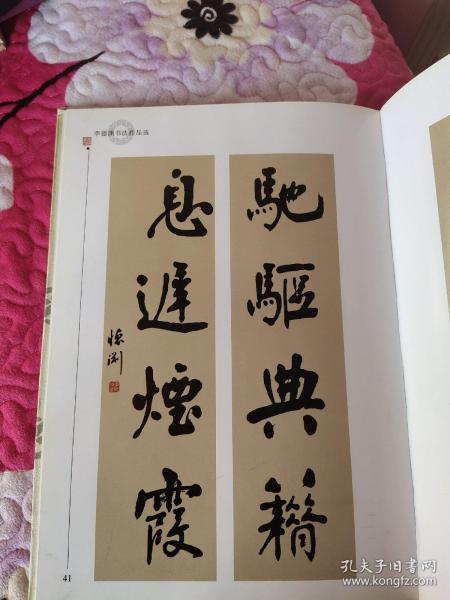 李德渊书法作品选
馳驅典籍
息遲煙霞
德渊
41
孔夫子旧书网
www.kongfz.com